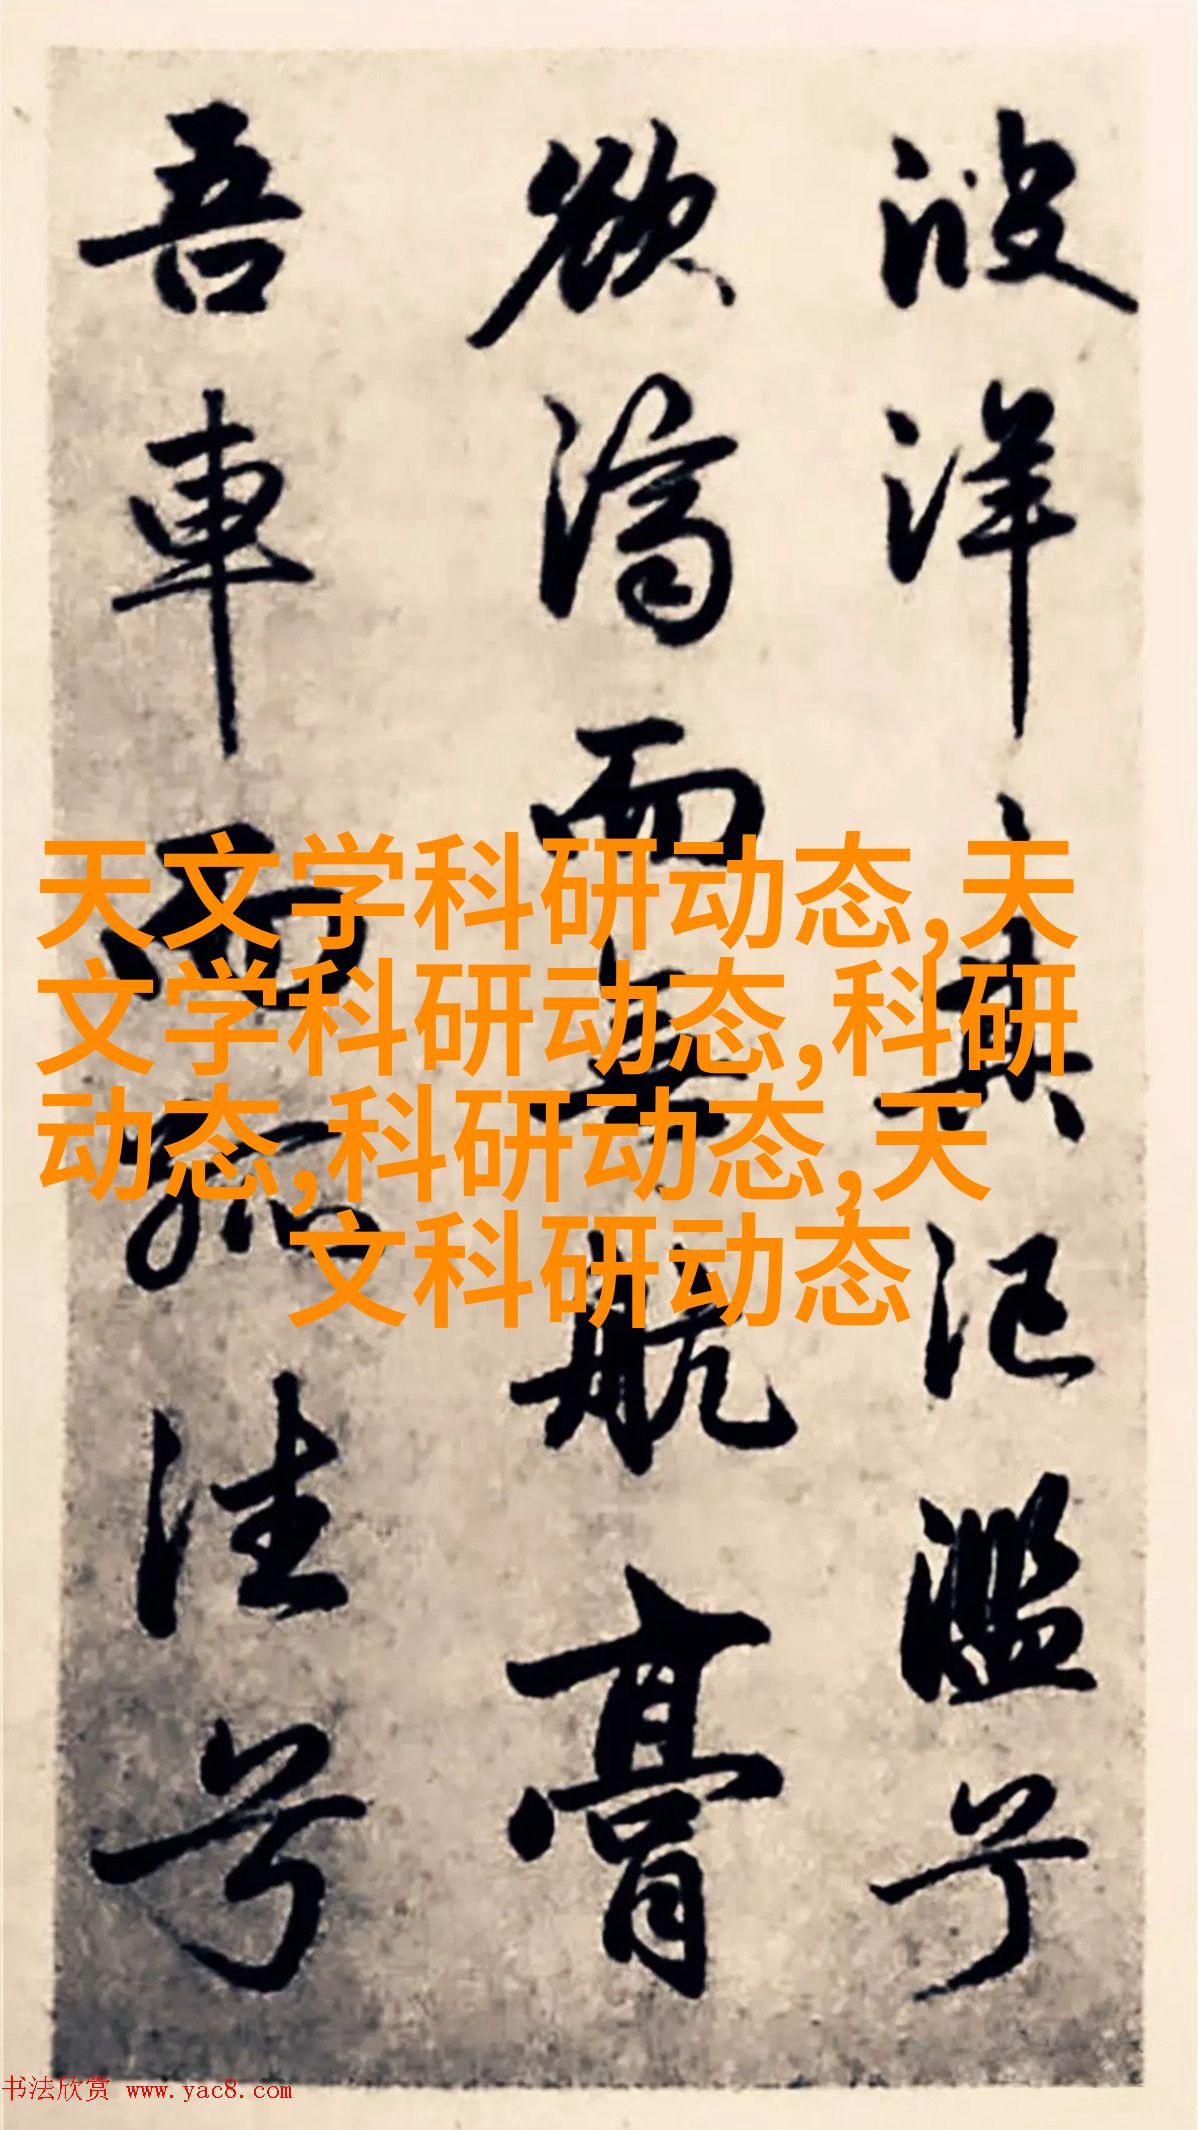 波洋其氾濫兮
欲濟而無航膏
吾車而孤往兮
天文学科研动态,天
文学科研动态,科研
动态,科研动态,天
文科研动态
书法欣赏 www.yac8.com